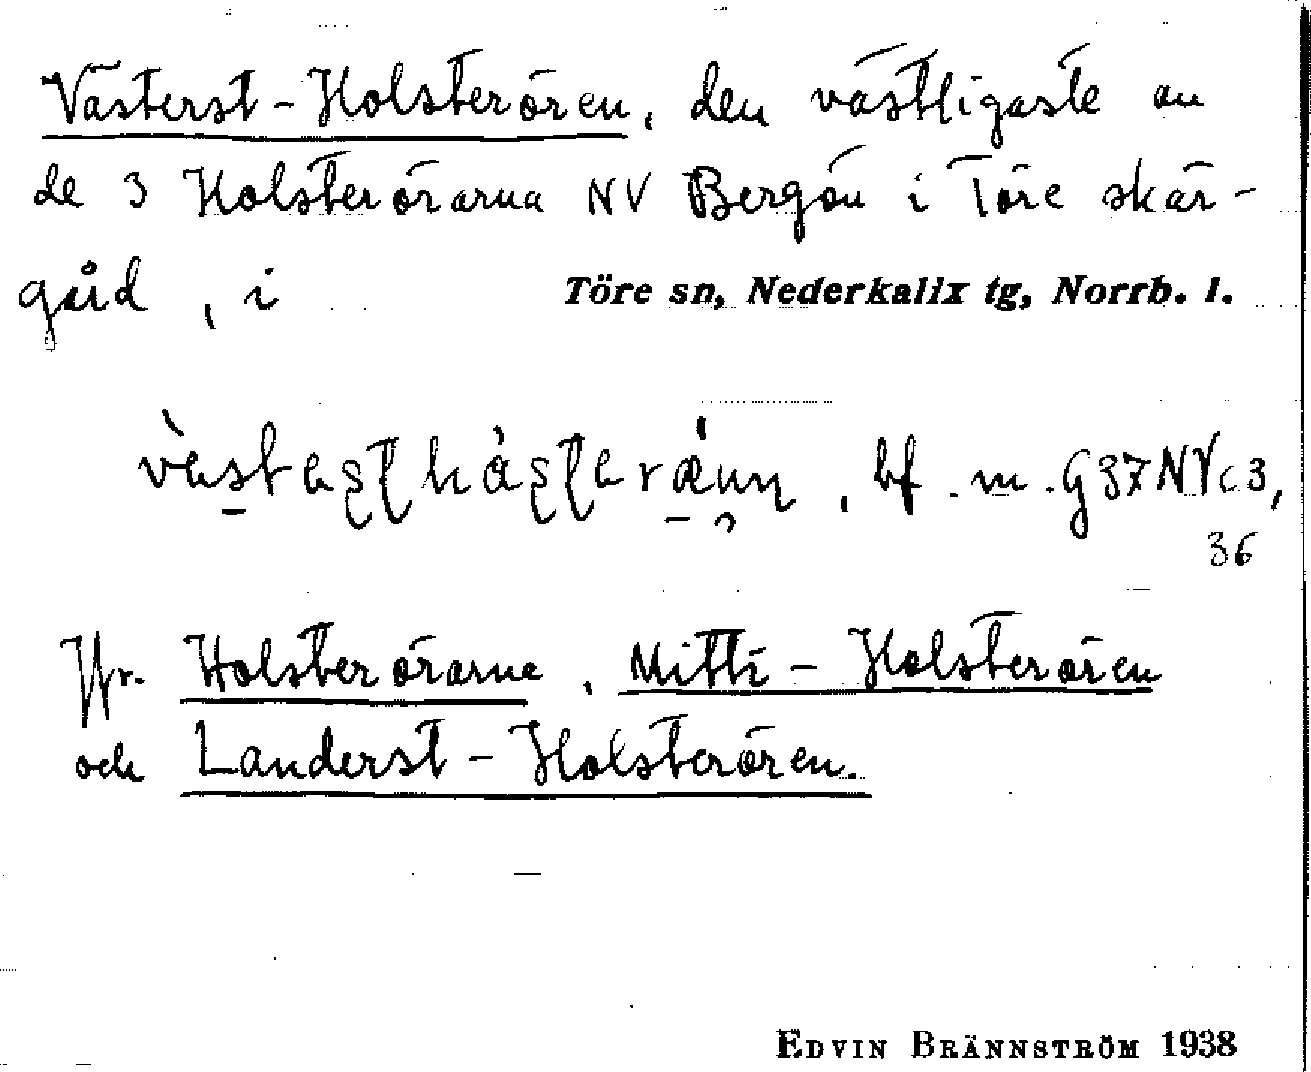 Västerst-Holsterören, den västligaste av
de 3 Holsterörarna NV Bergön i Töre skär-
gård, i Töre sn, Nederkalix tg, Norrb. l.
bf. m. G37NVc3,
36
Jfr. Holsterörarna, Mitti-Holsterören
och Landerst-Holsterören.
EDVIN BRÄNNSTRÖM 1938